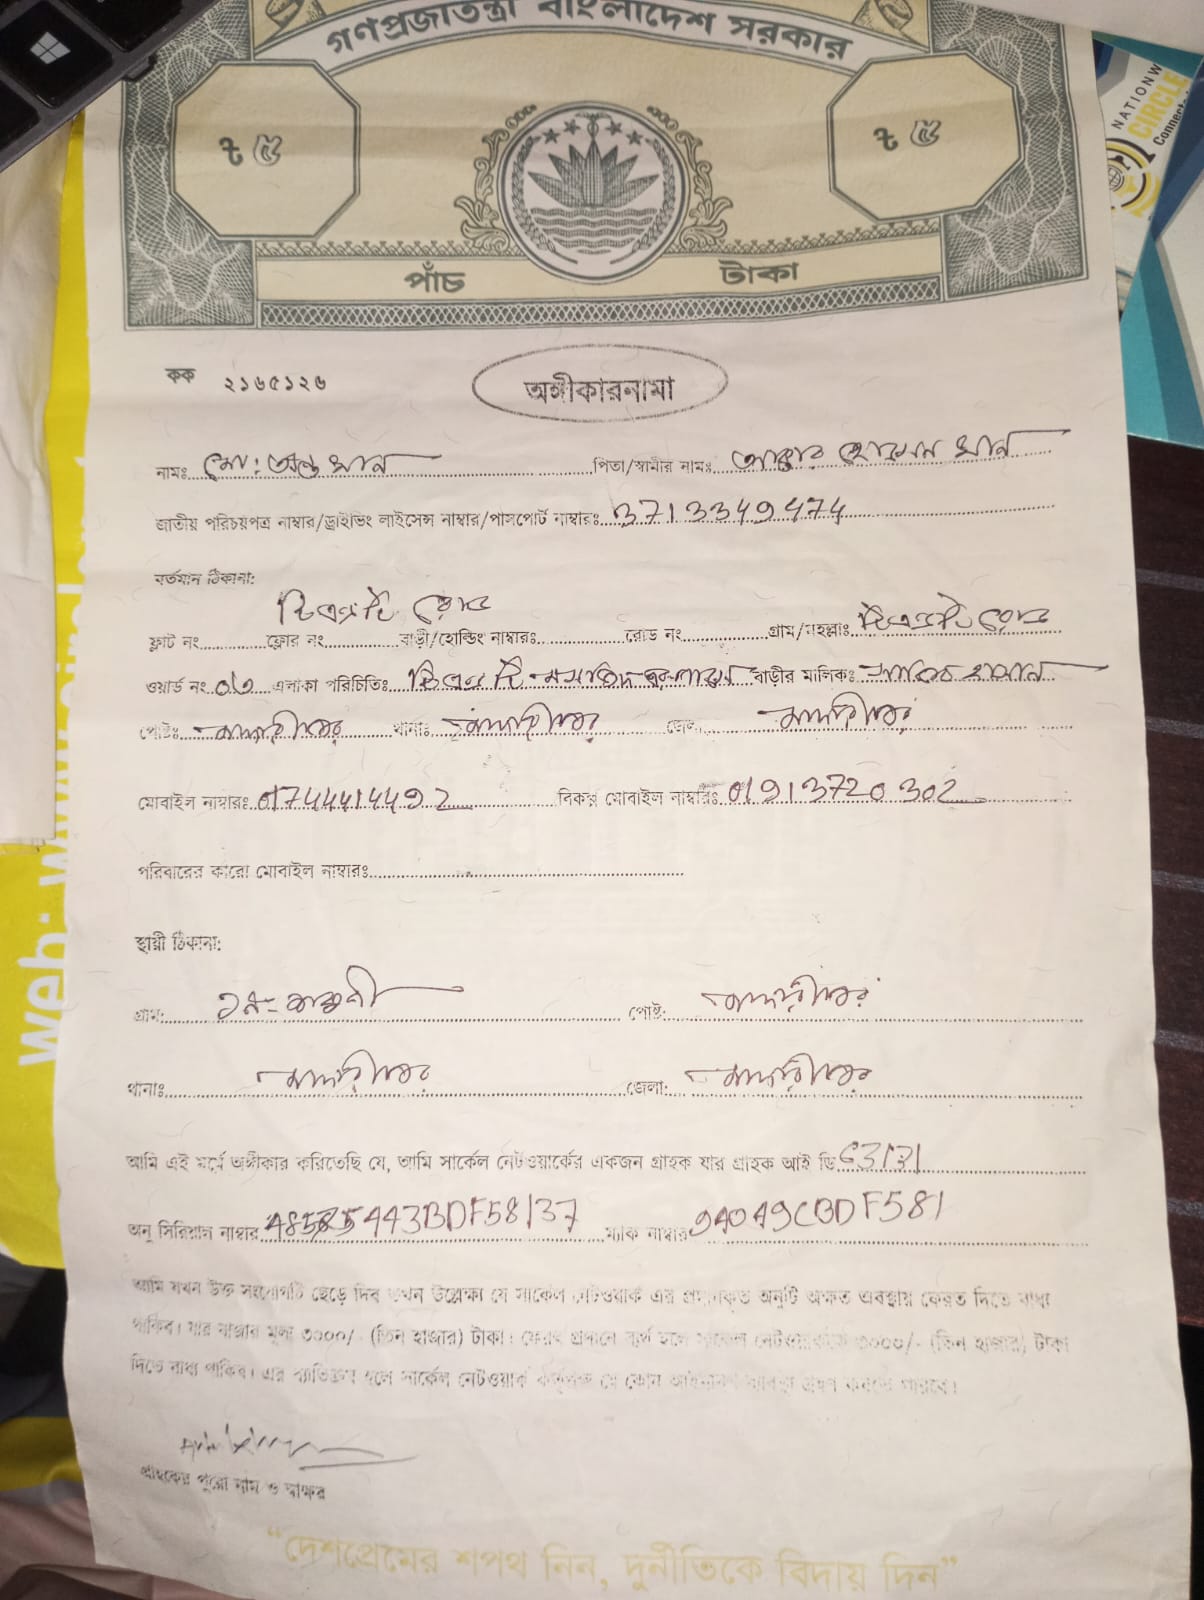 গণপ্রজাতন্ত্রী বাংলাদেশ সরকার
৳ ৫ ৳ ৫
পাঁচ টাকা
NATIONW
CIRCLE
Connect
web: www.circle
কক ২১৬৫১২৬
অঙ্গীকারনামা
নামঃ মো: অন্তু খান পিতা/স্বামীর নামঃ আক্তার হোসেন খান
জাতীয় পরিচয়পত্র নাম্বার/ড্রাইভিং লাইসেন্স নাম্বার/পাসপোর্ট নাম্বারঃ 3713349474
বর্তমান ঠিকানা:
ফ্লাট নং ফ্লোর নং বাড়ী/হোল্ডিং নাম্বারঃ রোড নং গ্রাম/মহল্লাঃ
ওয়ার্ড নং এলাকা পরিচিতিঃ বাড়ীর মালিকঃ
পোষ্টঃ মাদারীপুর থানাঃ মাদারীপুর জেলা মাদারীপুর
মোবাইল নাম্বারঃ 01744414492 বিকল্প মোবাইল নাম্বারঃ 01913720302
পরিবারের কারো মোবাইল নাম্বারঃ
স্থায়ী ঠিকানা:
গ্রাম: পোষ্ট: মাদারীপুর
থানাঃ মাদারীপুর জেলা: মাদারীপুর
আমি এই মর্মে অঙ্গীকার করিতেছি যে, আমি সার্কেল নেটওয়ার্কের একজন গ্রাহক যার গ্রাহক আই ডি
অনু সিরিয়াল নাম্বার ম্যাক নাম্বার 94049CBDF581
আমি যখন উক্ত সংযোগটি ছেড়ে দিব তখন উল্লেক্ষ্য যে সার্কেল নেটওয়ার্ক এর প্রদানকৃত অনুটি অক্ষত অবস্থায় ফেরত দিতে বাধ্য
থাকিব। যার বাজার মূল্য ৩০০০/- (তিন হাজার) টাকা। ফেরৎ প্রদানে ব্যর্থ হলে সার্কেল নেটওয়ার্ককে ৩০০০/- (তিন হাজার) টাকা
দিতে বাধ্য থাকিব। এর ব্যাতিক্রম হলে সার্কেল নেটওয়ার্ক কর্তৃপক্ষ যে কোন আইনানুগ ব্যবস্থা গ্রহন করতে পারবে।
গ্রাহকের পুরো নাম ও স্বাক্ষর
“দেশপ্রেমের শপথ নিন, দুর্নীতিকে বিদায় দিন”